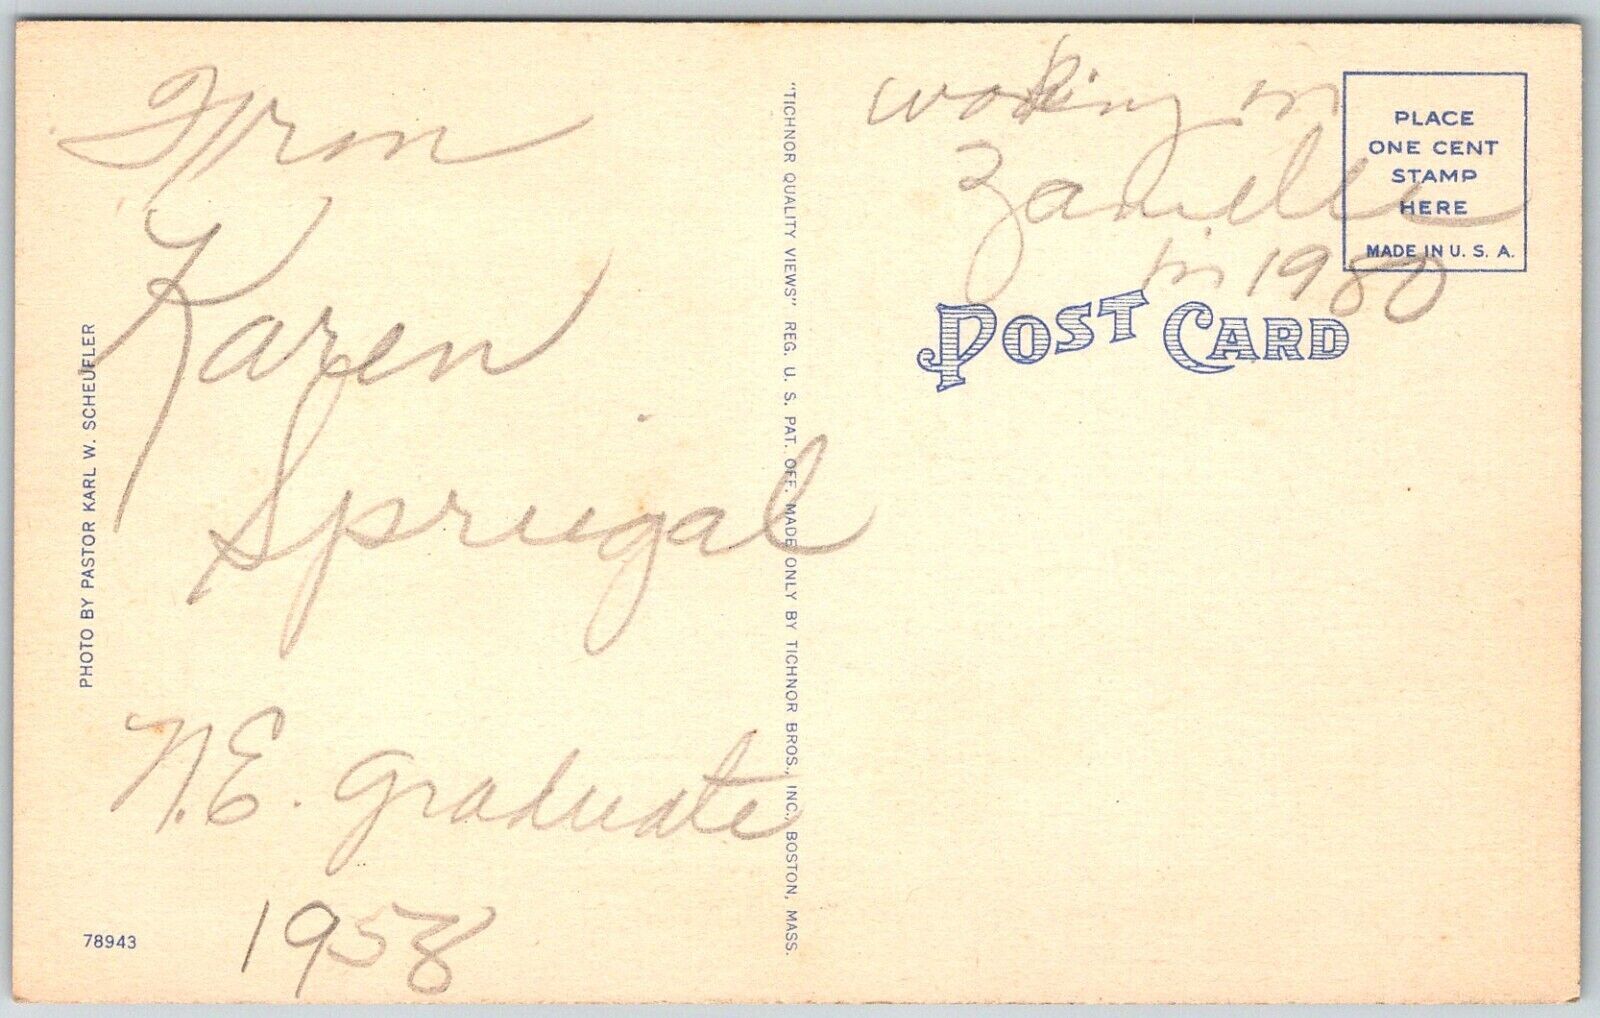 From
Karen
Sprugal
N.E. graduate
1958
working in
in 1980
PLACE
ONE CENT
STAMP
HERE
MADE IN U. S. A.
POST CARD
PHOTO BY PASTOR KARL W. SCHEUFLER
"TICHNOR QUALITY VIEWS" REG. U. S. PAT. OFF. MADE ONLY BY TICHNOR BROS., INC., BOSTON, MASS.
78943